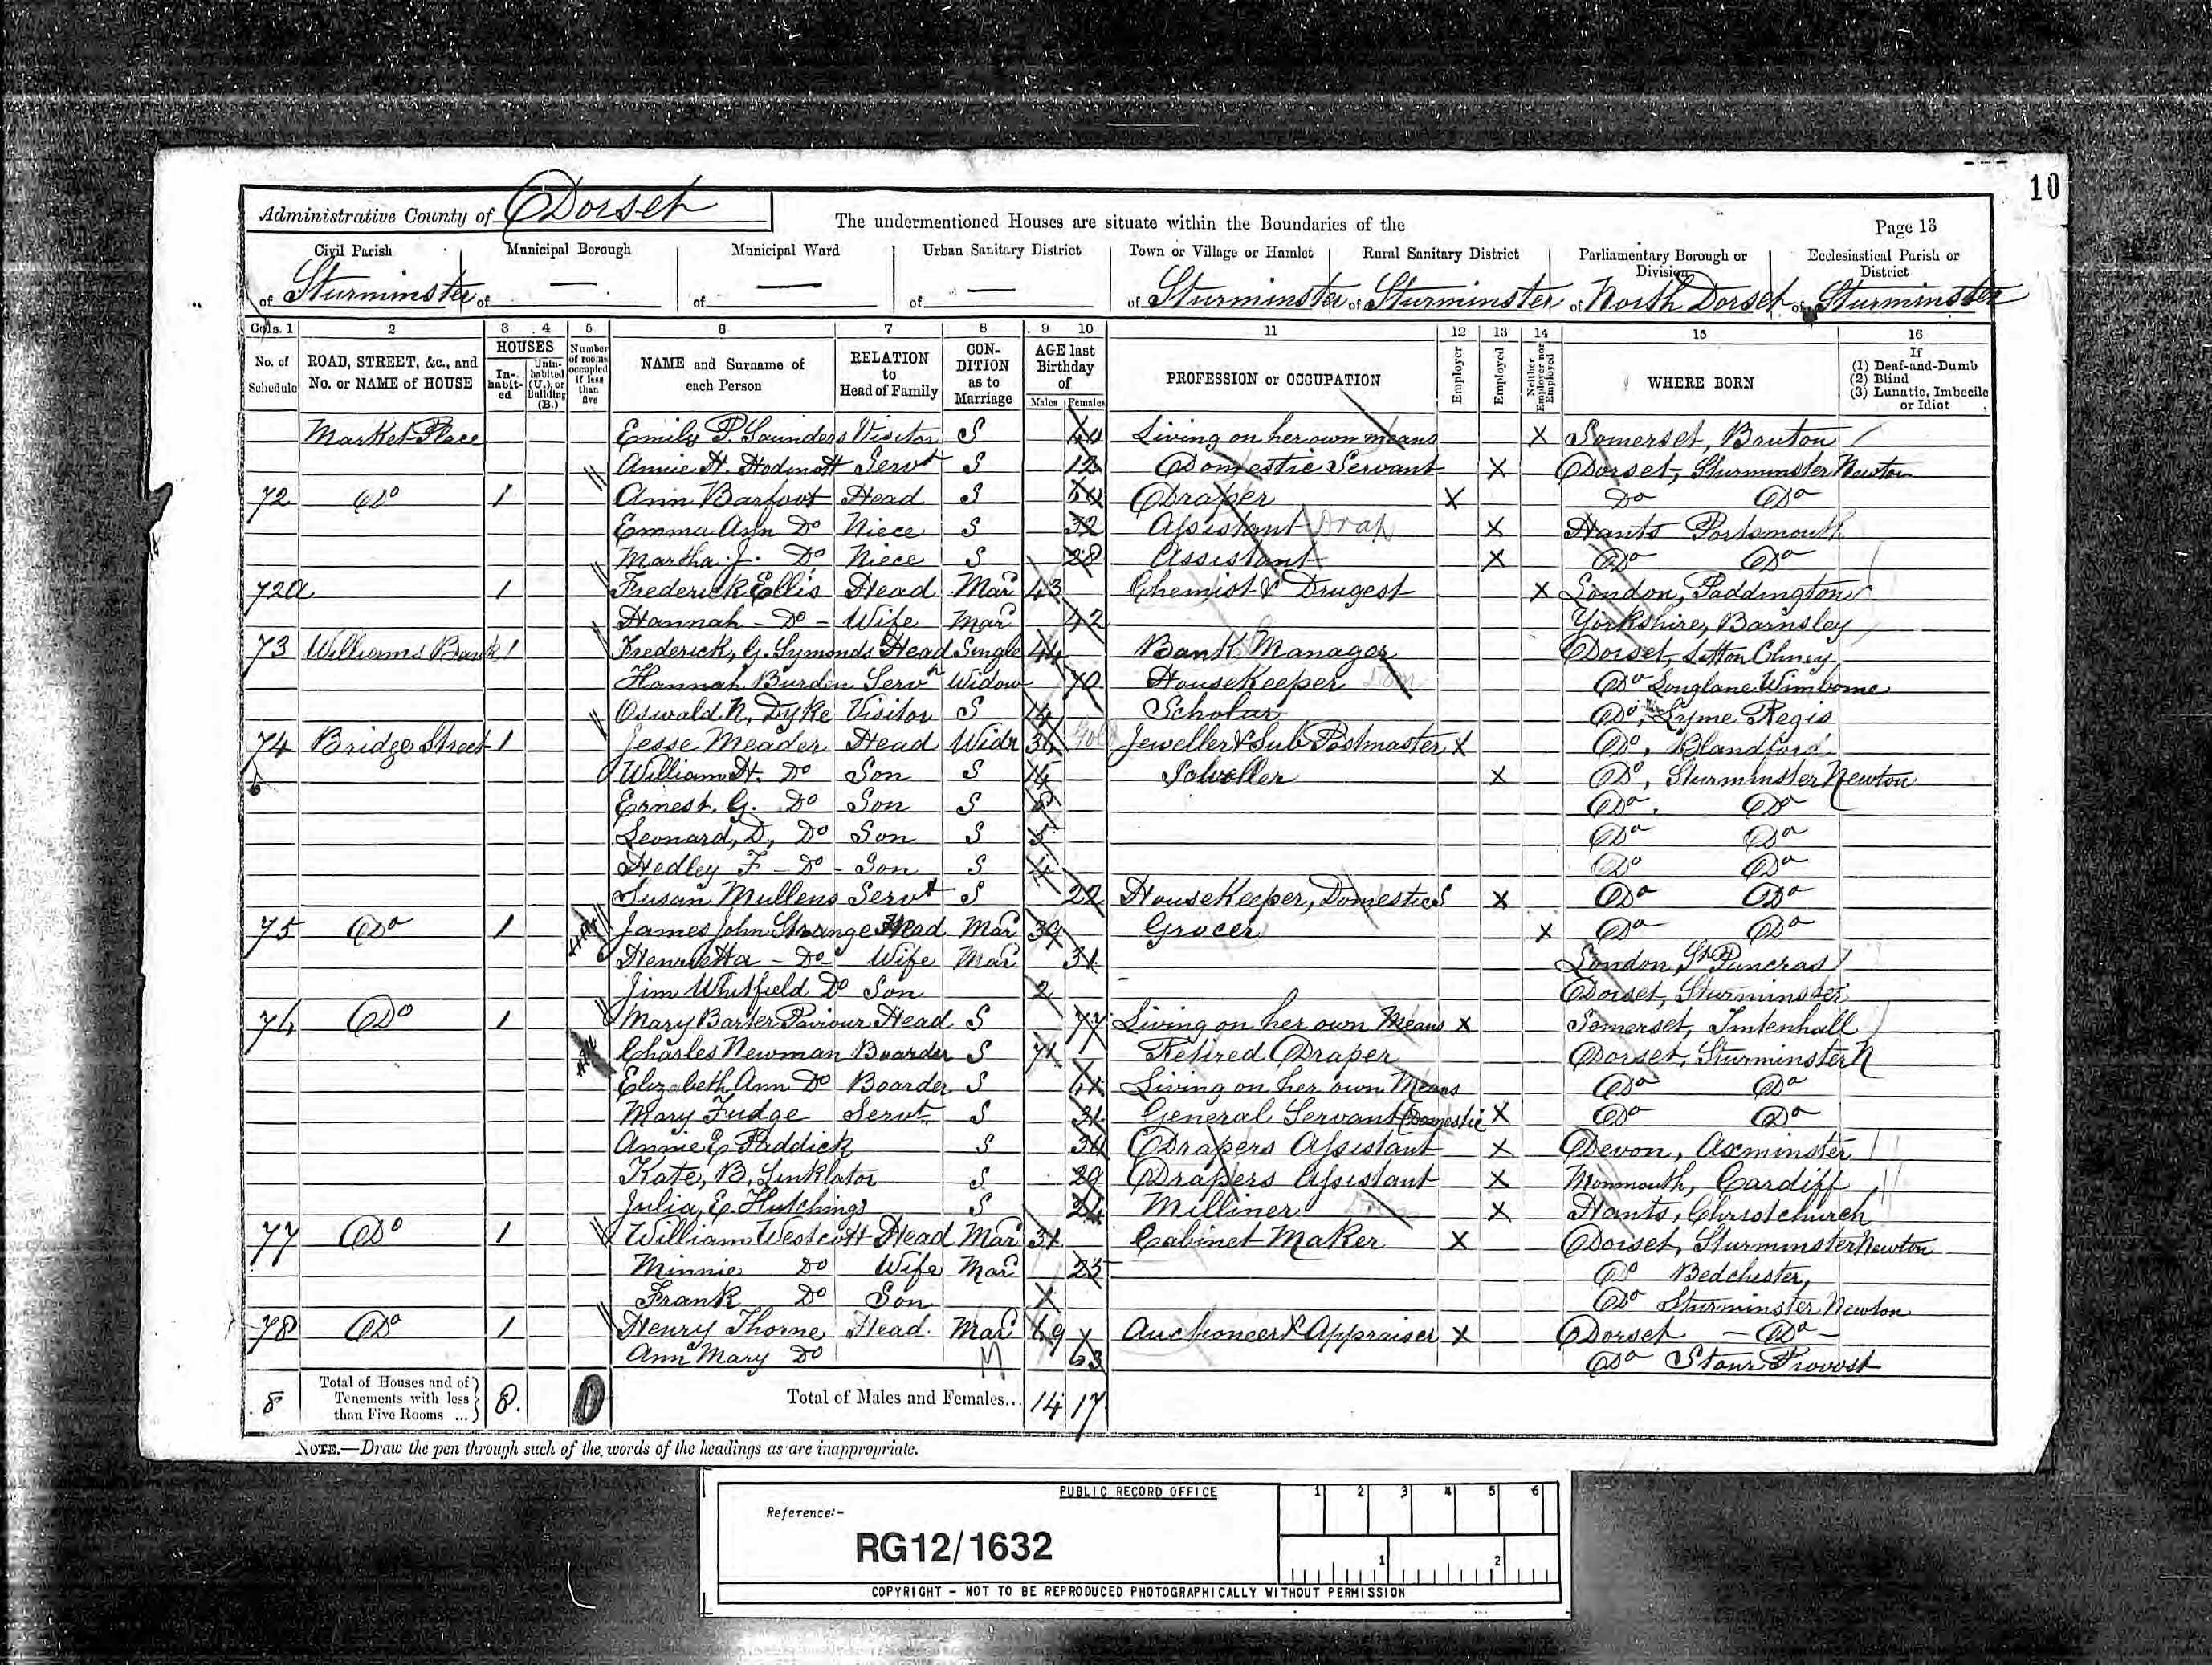 10
Administrative County of Dorset
The undermentioned Houses are situate within the Boundaries of the
Page 13
Civil Parish of Sturminster
Municipal Borough of —
Municipal Ward of —
Urban Sanitary District of —
Town or Village or Hamlet of Sturminster
Rural Sanitary District of Sturminster
Parliamentary Borough or Division of North Dorset
Ecclesiastical Parish or District of Sturminster
Cols. 1 2 3 4 5 6 7 8 9 10 11 12 13 14 15 16
No. of Schedule
ROAD, STREET, &c., and No. or NAME of HOUSE
HOUSES
In-habit-ed
Unin-habited (U.), or Building (B.)
Number of rooms occupied if less than five
NAME and Surname of each Person
RELATION to Head of Family
CON-DITION as to Marriage
AGE last Birthday of
Males Females
PROFESSION or OCCUPATION
Employer
Employed
Neither Employer nor Employed
WHERE BORN
If
(1) Deaf-and-Dumb
(2) Blind
(3) Lunatic, Imbecile or Idiot
Market Place Emily P. Saunders Visitor S Living on her own means X Somerset, Bruton
Annie H. Hodinott Servt S 12 Domestic Servant X Dorset, Sturminster Newton
72 Do 1 Ann Barfoot Head S 60 Draper X Do Do
Emma Ann Do Niece S 32 Assistant Drap X Hants Portsmouth
Martha J. Do Niece S 28 Assistant X Do Do
72a 1 Frederick Ellis Head Mar 43 Chemist & Drugest X London, Paddington
Hannah - Do - Wife Mar 42 Yorkshire, Barnsley
73 Williams Bank 1 Frederick, G. Symonds Head Single 44 Bank Manager Dorset, Litton Cheney
Hannah Burden Servt Widow 70 Housekeeper Dom Do Longlane Wimborne
Oswald N, Dyke Visitor S 14 Scholar Do, Lyme Regis
74 Bridge Street 1 Jesse Meader Head Widr 36 Jeweller & Sub Postmaster X Do, Blandford
William H. Do Son S 14 X Do, Sturminster Newton
Ernest. G. Do Son S Do. Do
Leonard, D, Do Son S 5 Do Do
Hedley F - Do - Son S 4 Do Do
Susan Mullens Servt S 22 HouseKeeper, Domestics X Do Do
75 Do 1 James John Strange Head Mar 39 Grocer X Do Do
Henrietta - Do - Wife Mar 31 London, St Pancras
Jim Whitfield Do Son 2 Dorset, Sturminster
76 Do 1 Mary Barter Head S 77 Living on her own Means X Somerset,
Charles Newman Boarder S 71 Retired Draper Dorset, Sturminster N
Elizabeth Ann Do Boarder S Living on her own Means Do Do
Mary Fudge Servt S 31 General Servant Domestic X Do Do
Annie E Paddick S 34 Drapers Assistant X Devon, Axminster
Kate, B, Linklator S 29 Drapers Assistant X Monmouth, Cardiff
Julia, E. Hutchings S 24 Milliner X Hants, Christchurch
77 Do 1 William Westcott Head Mar 31 Cabinet Maker X Dorset, Sturminster Newton
Minnie Do Wife Mar 25 Do Bedchester,
Frank Do Son Do Sturminster Newton
78 Do 1 Henry Thorne Head. Mar 69 Auctioneer & Appraiser X Dorset - Do -
Ann Mary Do M 63 Do Stour Provost
8 Total of Houses and of Tenements with less than Five Rooms ... 8. 0 Total of Males and Females... 14 17
NOTE.—Draw the pen through such of the words of the headings as are inappropriate.
PUBLIC RECORD OFFICE
1 2 3 4 5 6
Reference:-
RG12/1632
1 2
COPYRIGHT - NOT TO BE REPRODUCED PHOTOGRAPHICALLY WITHOUT PERMISSION